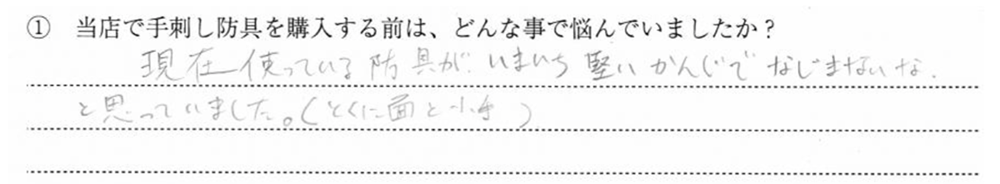 ① 当店で手刺し防具を購入する前は、どんな事で悩んでいましたか？
現在使っている防具が、いまいち堅いかんじでなじまないな、
と思っていました。(とくに面と小手)